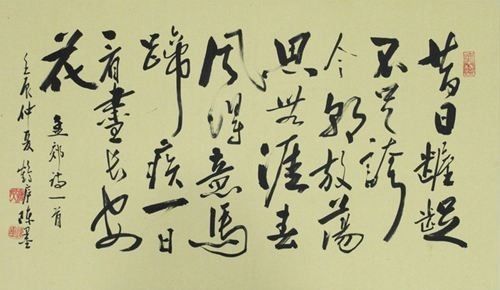 昔日齷齪
不足誇
今朝放蕩
思無涯春
風得意馬
蹄疾一日
看盡長安
花
孟郊詩一首
壬辰仲夏 陳墨